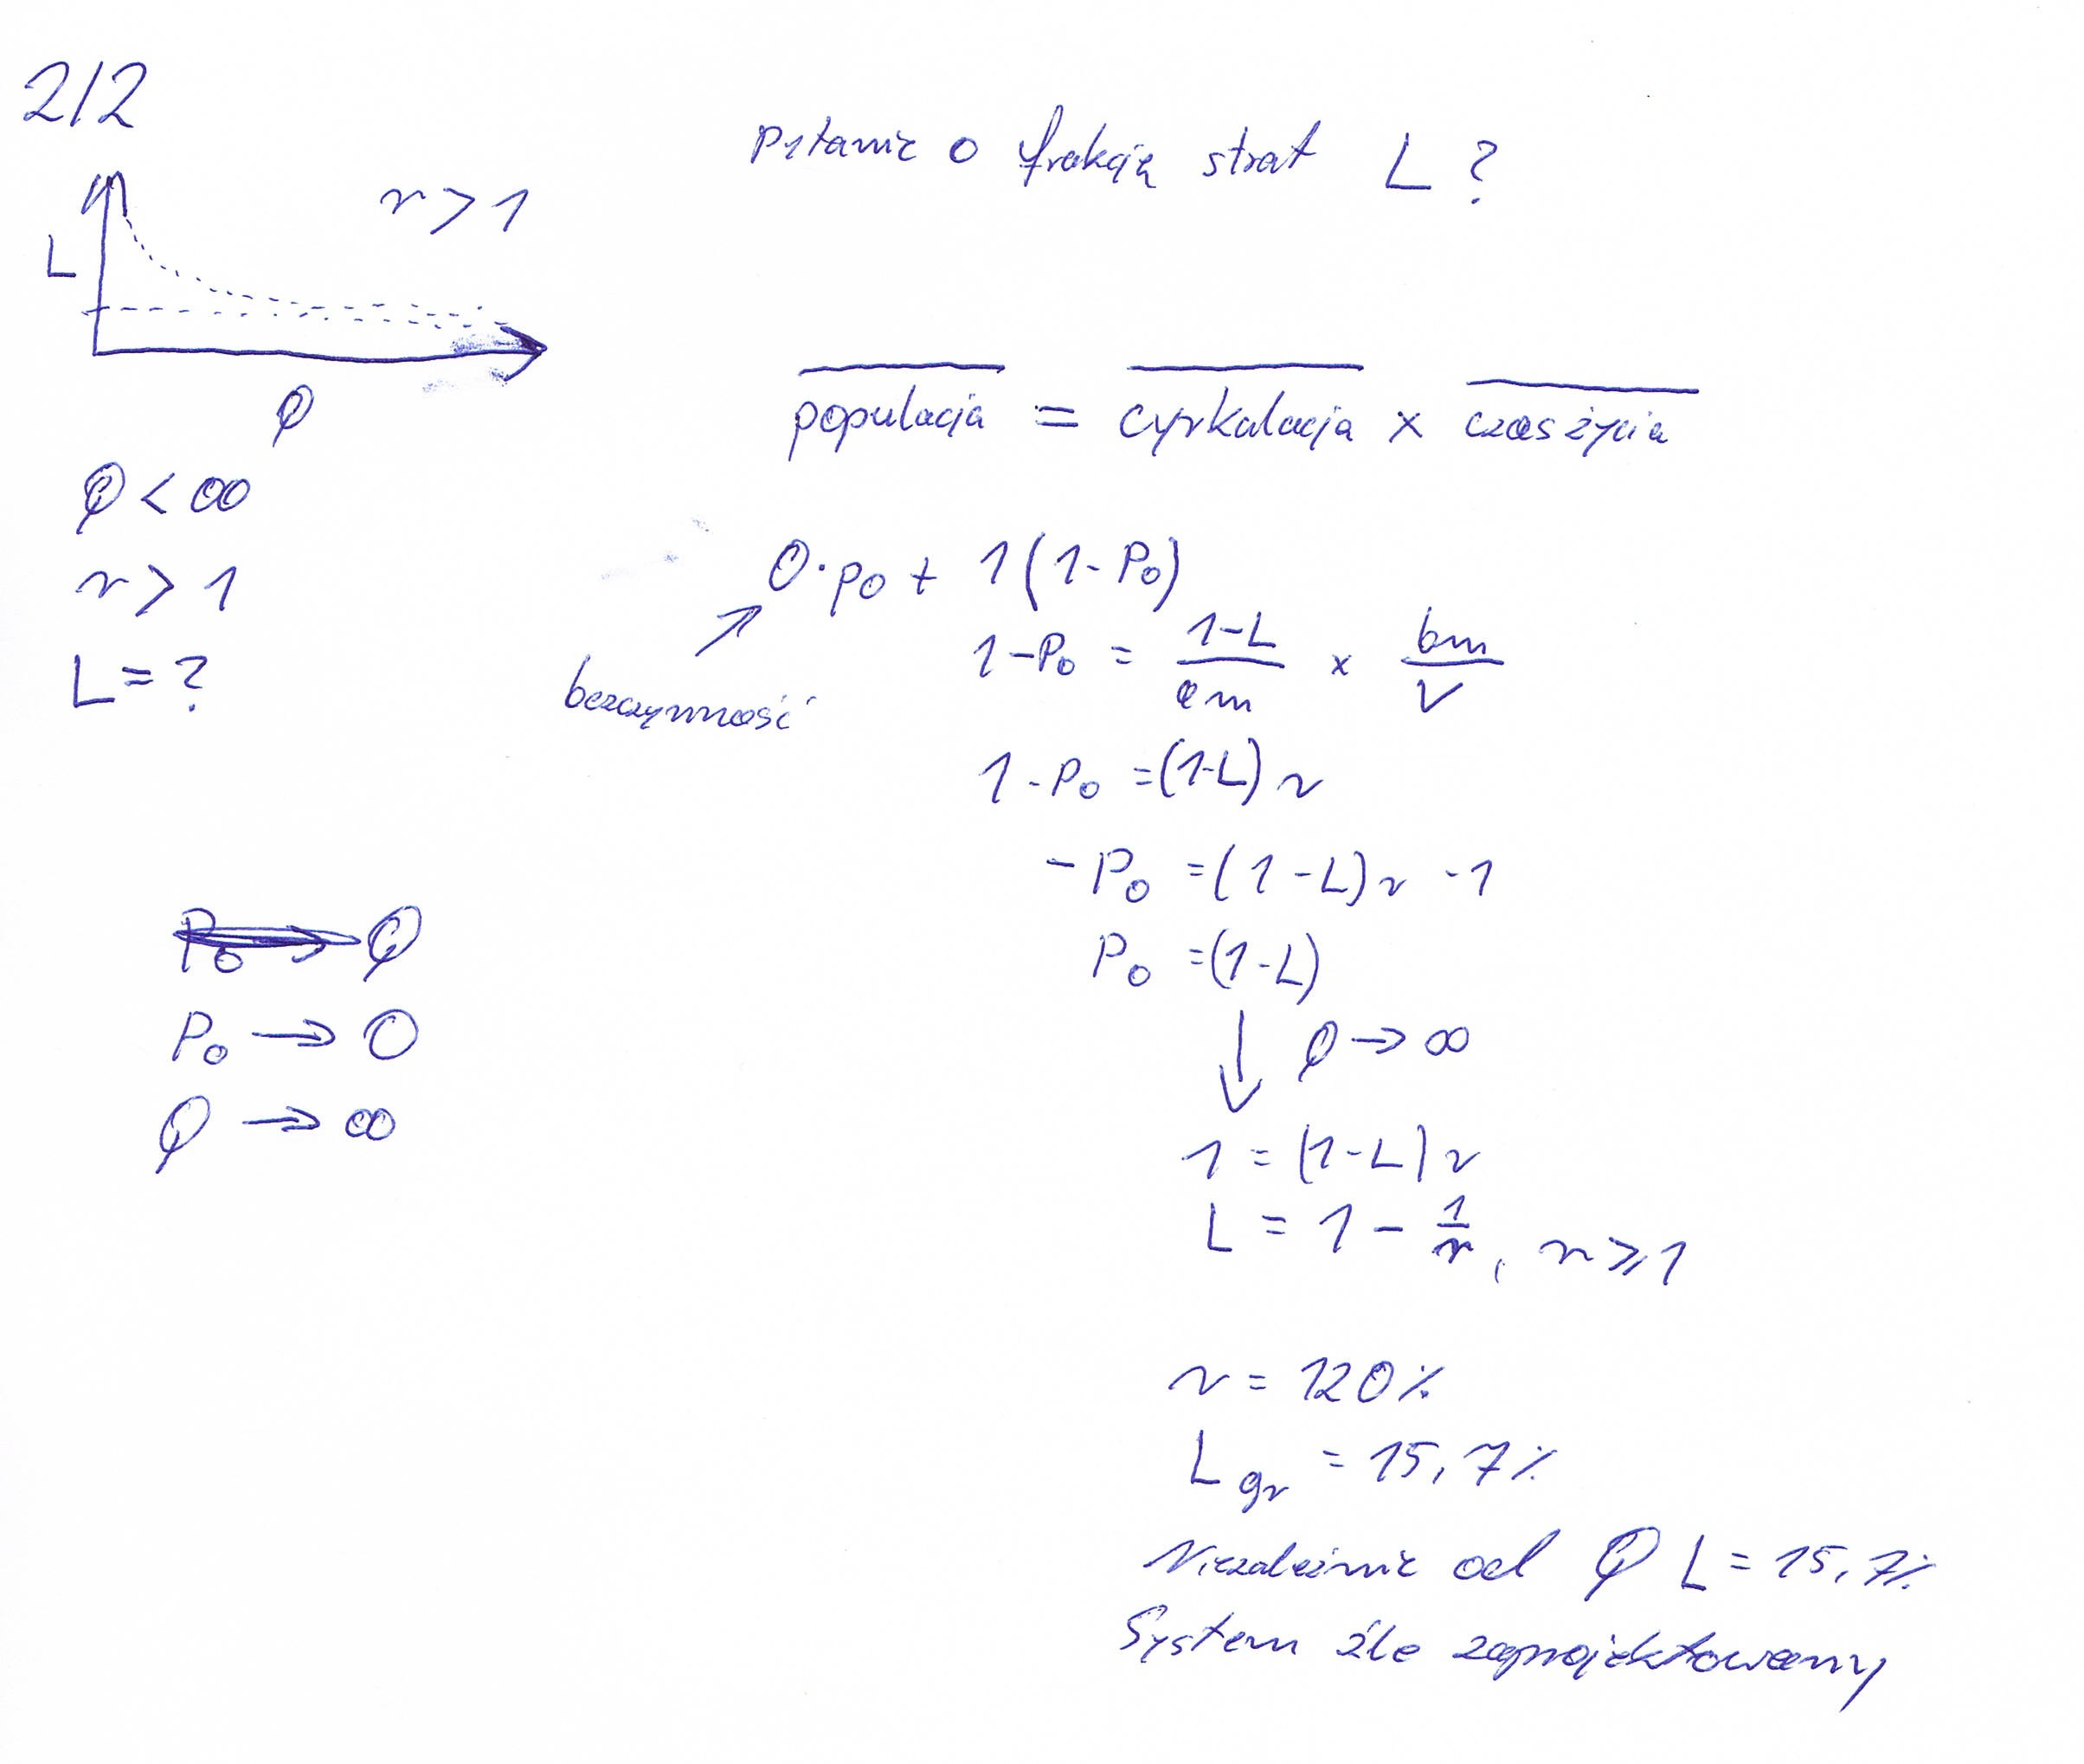 2/2
Pytanie o frakcję strat L ?
r > 1
L
Q
populacja = cyrkulacja × czas życia
Q < ∞
r > 1
L = ?
0·p₀ + 1(1-P₀)
bezczynność
1-P₀ = (1-L)/(am) × (bm)/V
1-P₀ = (1-L) r
-P₀ = (1-L) r -1
P₀ = (1-L)
P₀ → Q
P₀ → 0
Q → ∞
↓ Q → ∞
1 = (1-L) r
L = 1 - 1/r, r ⩾ 1
r = 120%
L gr = 15,7%
Niezależnie od Q L = 15,7%
System źle zaprojektowany